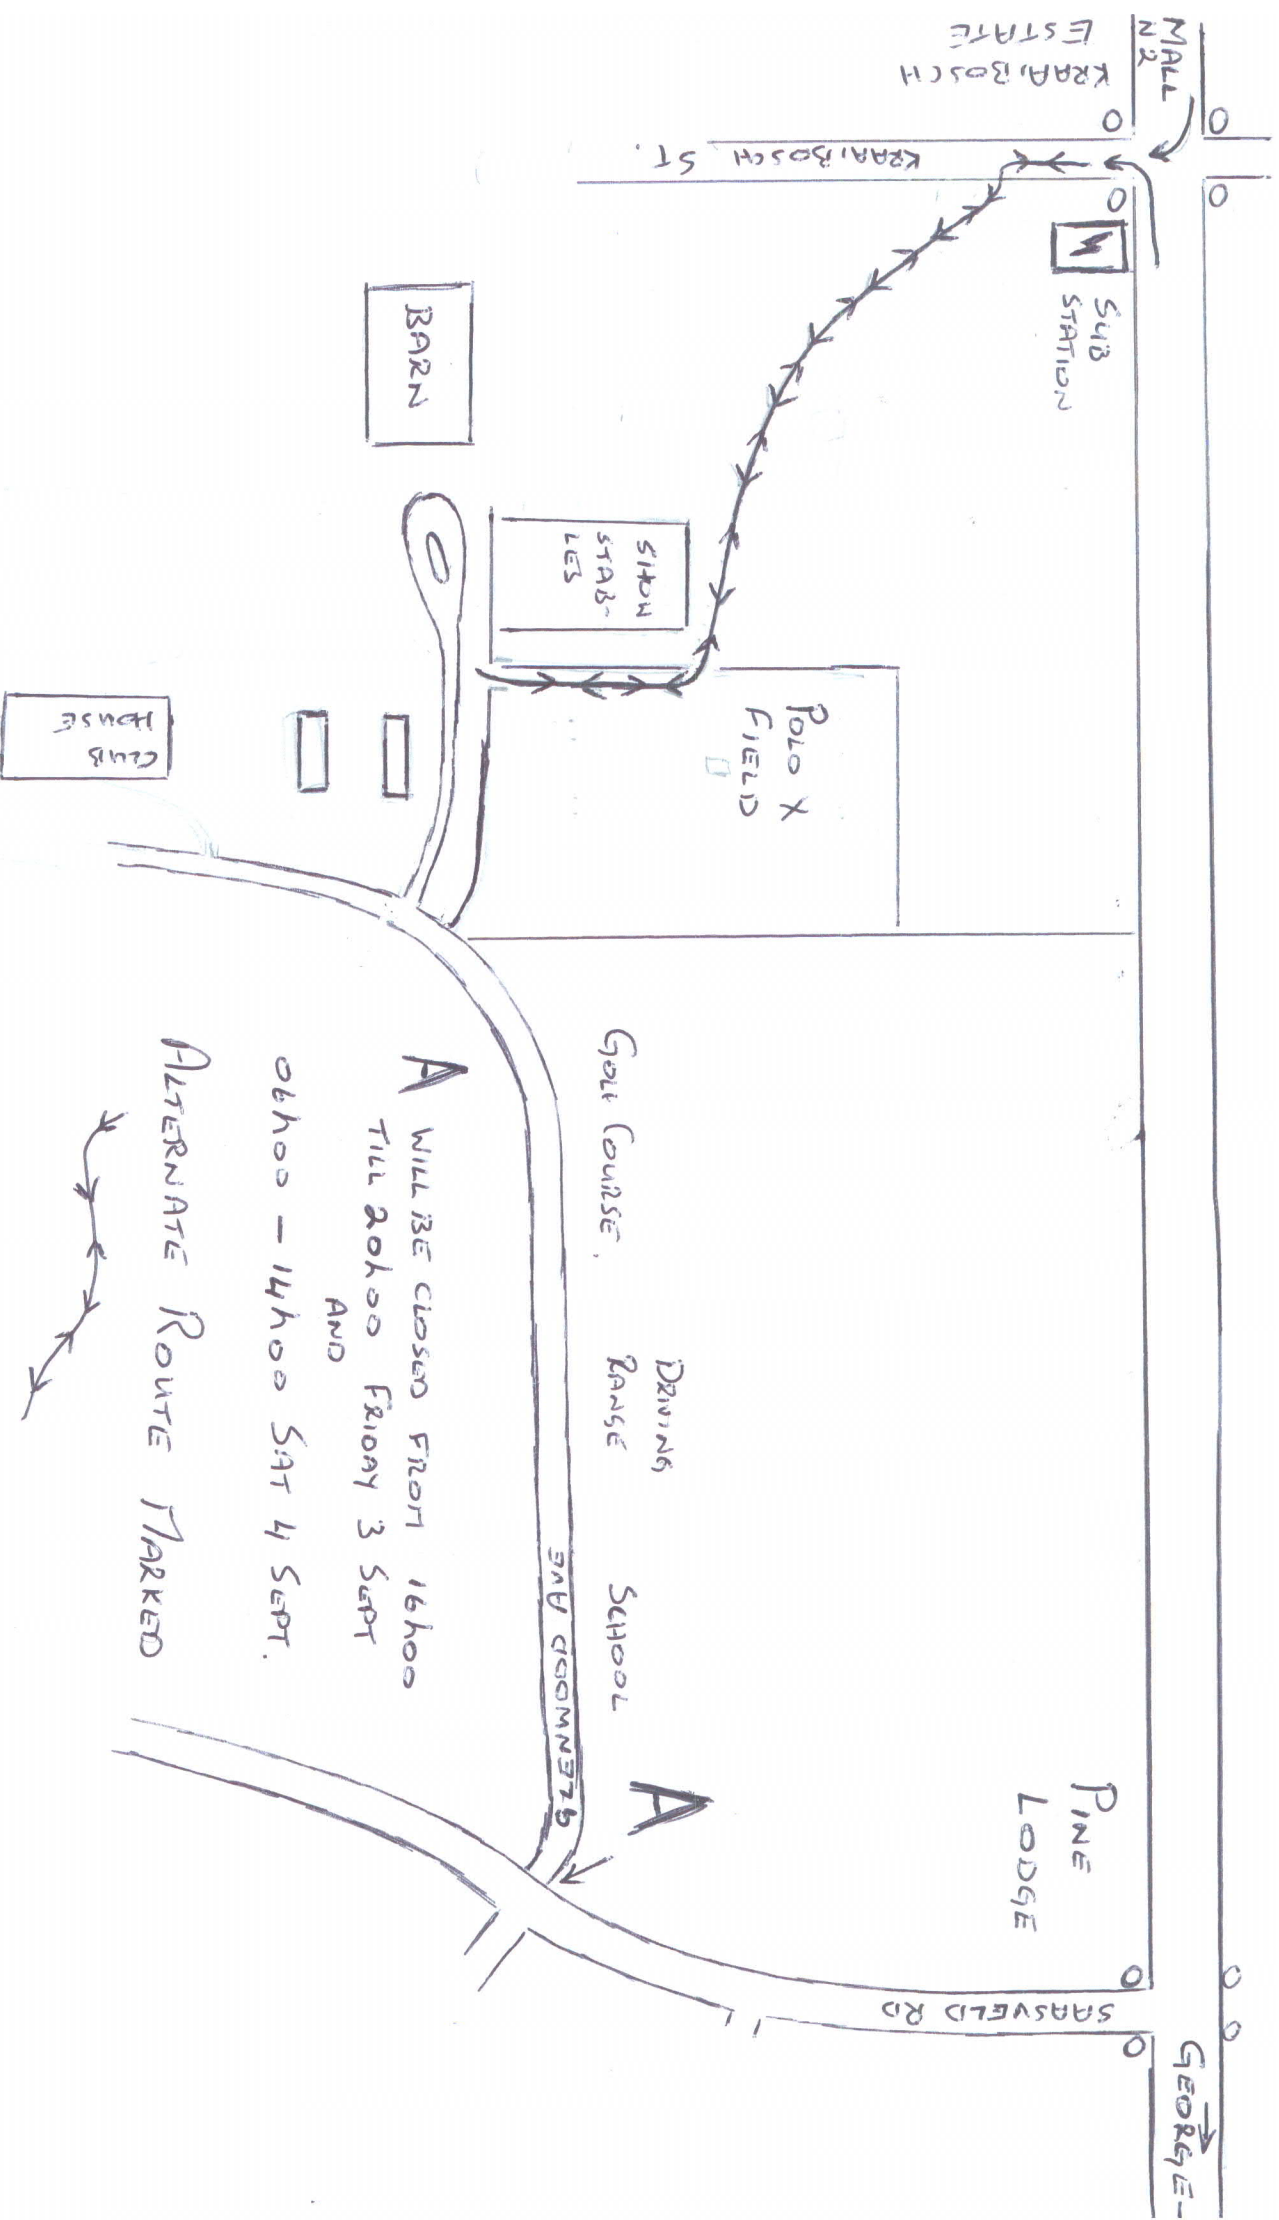 MALL
N2
KRAAIBOSCH
ESTATE
KRAAIBOSCH ST.
SUB
STATION
BARN
SHOW
STAB-
LES
POLO X
FIELD
CLUB
HOUSE
GOLF COURSE.
DRIVING
RANGE
SCHOOL
PINE
LODGE
GEORGE
SAASVELD RD
GLENWOOD AVE
A
A WILL BE CLOSED FROM 16h00
TILL 20h00 FRIDAY 3 SEPT
AND
06h00 - 14h00 SAT 4 SEPT.
ALTERNATE ROUTE MARKED